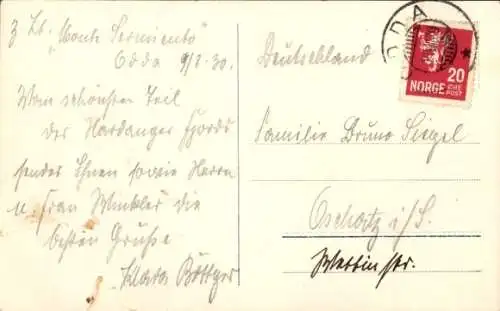 z. Zt. "Monte Sarmiento"
Odda 9/8.30.
Vom schönsten Teil
der Hardanger Fjords
sendet Ihnen sowie Herrn
u. Frau Winkler die
besten Grüße
Klara Böttger
Deutschland
Familie Bruno Siegel
Oschatz i/S.
Wettinstr.
ODDA
20
NORGE
ØRE
POST